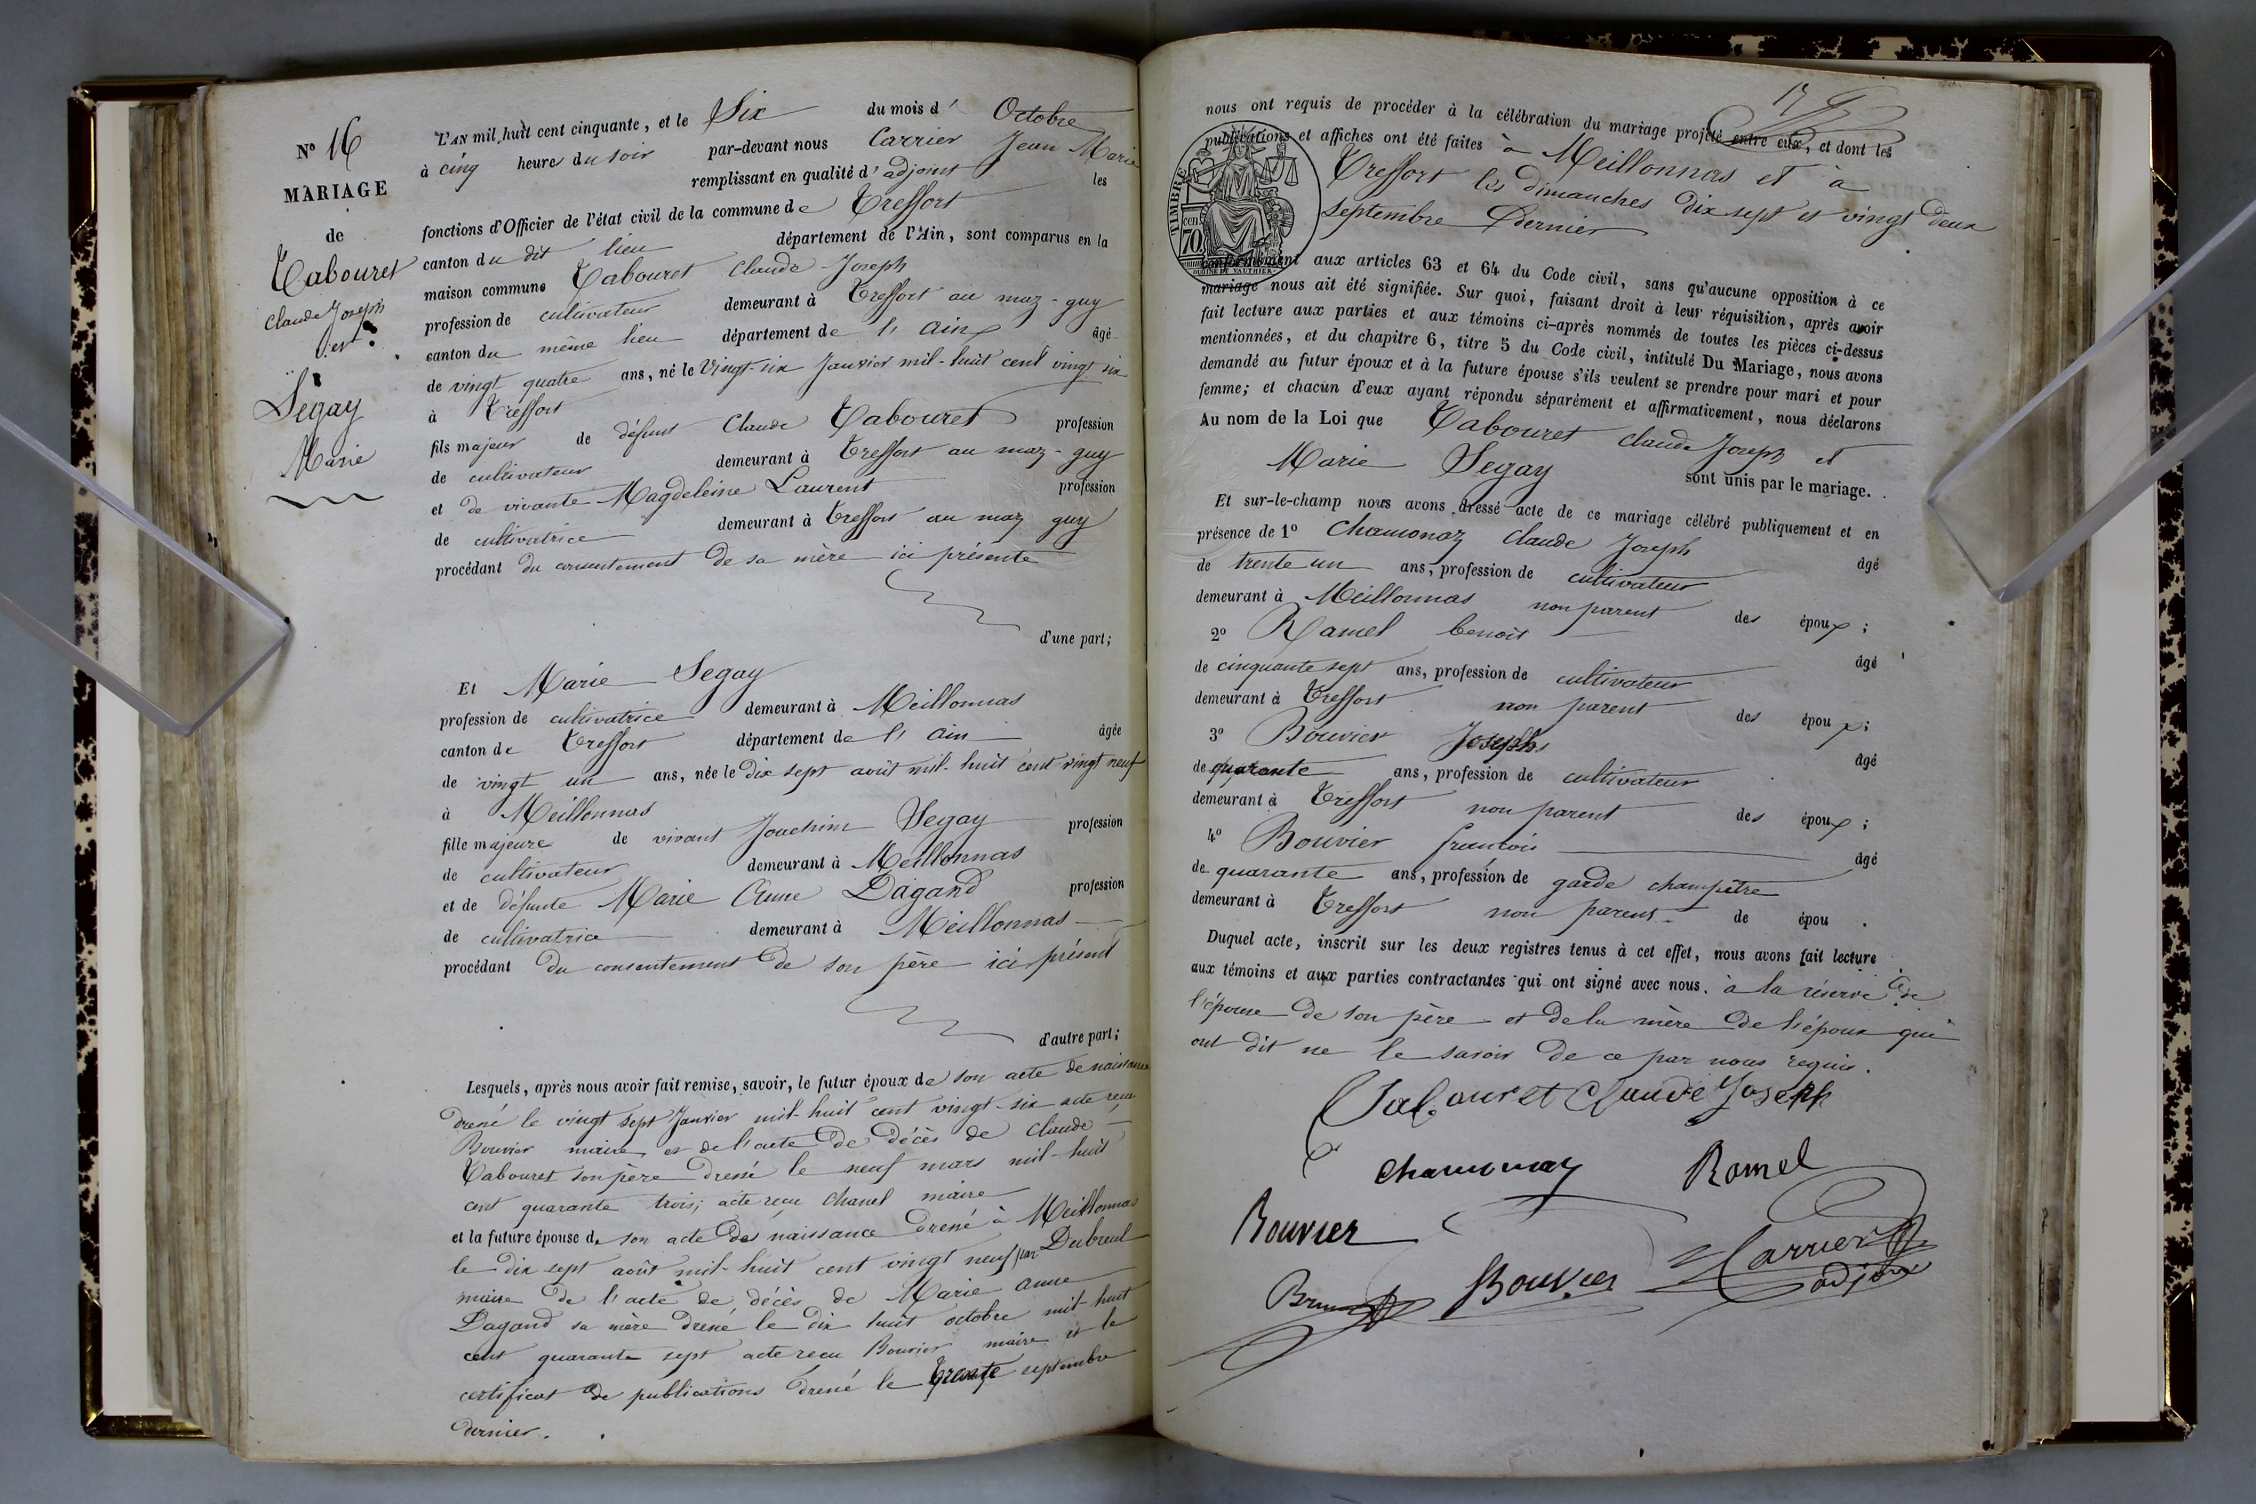 N° 16
MARIAGE
de
Tabouret
Claude Joseph
et
Segay
Marie
L'AN mil huit cent cinquante, et le Six du mois d' Octobre
à cinq heures du soir par-devant nous Carrier Jean Marie
remplissant en qualité d'adjoint les
fonctions d'Officier de l'état civil de la commune de Treffort
canton du dit lieu département de l'Ain, sont comparus en la
maison commune Tabouret Claude Joseph
profession de cultivateur demeurant à Treffort au maz-guy
canton du même lieu département de l'ain âgé
de vingt quatre ans, né le Vingt-six Janvier mil-huit cent vingt six
à Treffort
fils majeur de défunt Claude Tabouret profession
de cultivateur demeurant à Treffort au maz-guy
et de vivante Magdeleine Laurent profession
de cultivatrice demeurant à Treffort au maz guy
procédant du consentement de sa mère ici présente
d'une part;
Et Marie Segay
profession de cultivatrice demeurant à Meillonnas
canton de Treffort département de l'ain âgée
de vingt un ans, née le dix sept août mil-huit cent vingt neuf
à Meillonnas
fille majeure de vivant Joachim Segay profession
de cultivateur demeurant à Meillonnas
et de défunte Marie Anne Dagand profession
de cultivatrice demeurant à Meillonnas
procédant du consentement de son père ici présent
d'autre part;
Lesquels, après nous avoir fait remise, savoir, le futur époux de son acte de naissance
dressé le vingt sept Janvier mil-huit cent vingt-six acte recu
Bouvier maire et de l'acte de décès de Claude
Tabouret son père dressé le neuf mars mil-huit
cent quarante trois; acte recu Chanel maire
et la future épouse de son acte de naissance dressé à Meillonnas
le dix sept août mil-huit cent vingt neuf par Dubreul
maire de l'acte de décès de Marie anne
Dagand sa mère dressé le dix huit octobre mil-huit
cent quarante sept acte recu Bouvier maire et le
certificat de publications dressé le trente septembre
dernier.
17
nous ont requis de procéder à la célébration du mariage projeté entre eux, et dont les
publications et affiches ont été faites à Meillonnas et à
Treffort les dimanches dix sept et vingt deux
septembre dernier
TIMBRE
70
conformément aux articles 63 et 64 du Code civil, sans qu'aucune opposition à ce
mariage nous ait été signifiée. Sur quoi, faisant droit à leur réquisition, après avoir
fait lecture aux parties et aux témoins ci-après nommés de toutes les pièces ci-dessus
mentionnées, et du chapitre 6, titre 5 du Code civil, intitulé Du Mariage, nous avons
demandé au futur époux et à la future épouse s'ils veulent se prendre pour mari et pour
femme; et chacun d'eux ayant répondu séparément et affirmativement, nous déclarons
Au nom de la Loi que Tabouret Claude Joseph et
Marie Segay sont unis par le mariage.
Et sur-le-champ nous avons dressé acte de ce mariage célébré publiquement et en
présence de 1° Chamonaz Claude Joseph âgé
de trente un ans, profession de cultivateur
demeurant à Meillonnas non parent des époux;
2° Ramel benoit âgé
de cinquante sept ans, profession de cultivateur
demeurant à Treffort non parent des époux;
3° Bouvier Joseph âgé
de quarante ans, profession de cultivateur
demeurant à Treffort non parent des époux;
4° Bouvier francois âgé
de quarante ans, profession de garde champêtre
demeurant à Treffort non parent de épou .
Duquel acte, inscrit sur les deux registres tenus à cet effet, nous avons fait lecture
aux témoins et aux parties contractantes qui ont signé avec nous. à la réserve de
l'épouse de son père et de la mère de l'époux qui
ont dit ne le savoir de ce par nous requis.
Tabouret Claude Joseph
Chamonaz Ramel
Bouvier
Carrier
adjoint
Bouvier